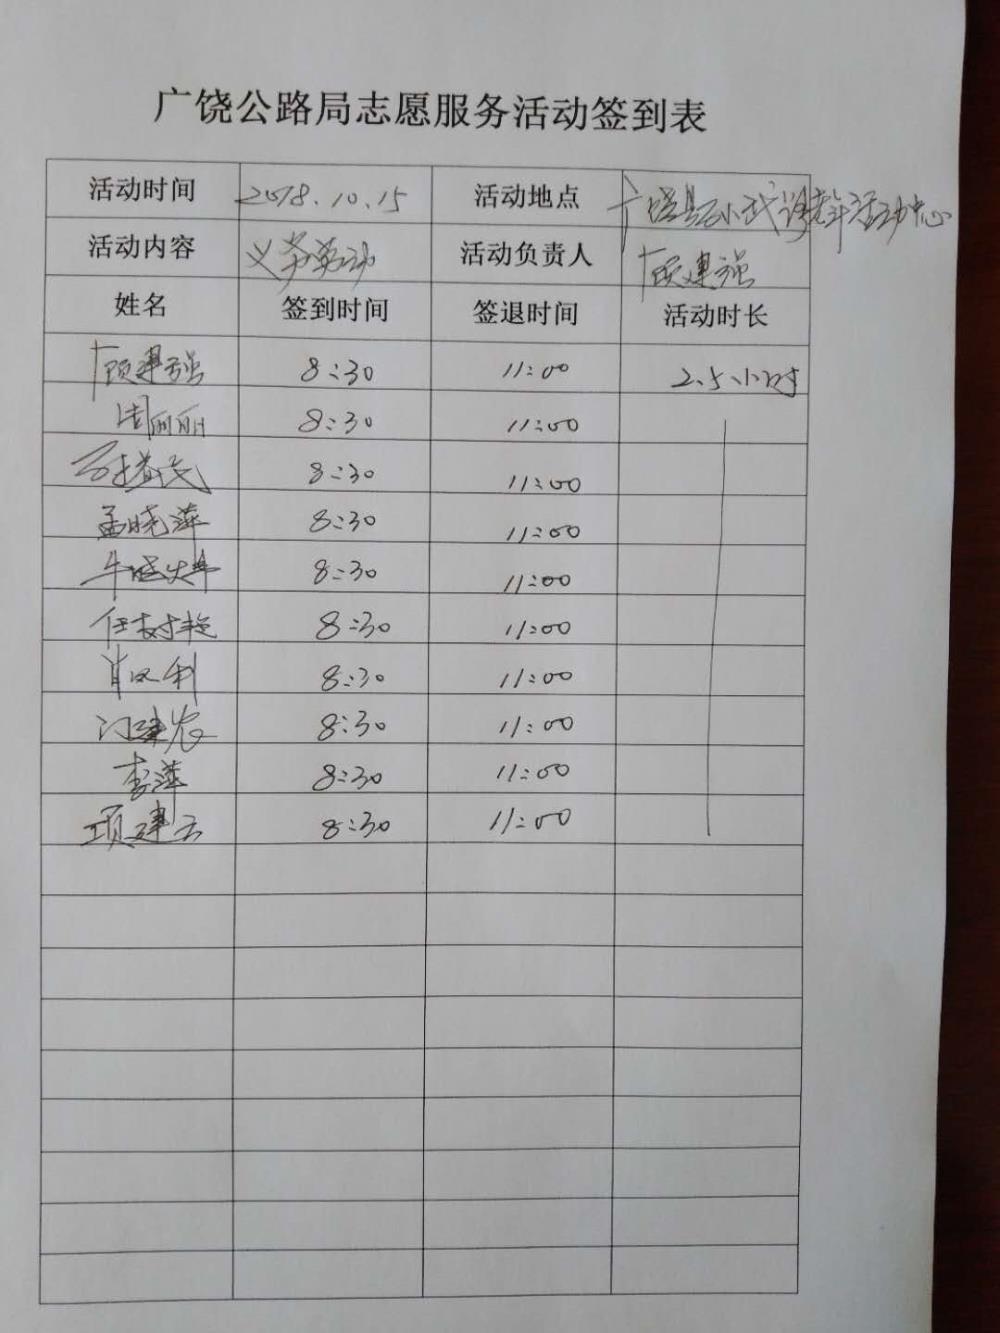 广饶公路局志愿服务活动签到表
活动时间 2018.10.15 活动地点 广饶县 老年活动中心
活动内容 义务劳动 活动负责人 顾建强
姓名 签到时间 签退时间 活动时长
顾建强 8:30 11:00 2.5小时
周丽丽 8:30 11:00
8:30 11:00
孟晓萍 8:30 11:00
8:30 11:00
任树艳 8:30 11:00
肖风利 8:30 11:00
门建农 8:30 11:00
李萍 8:30 11:00
项建云 8:30 11:00